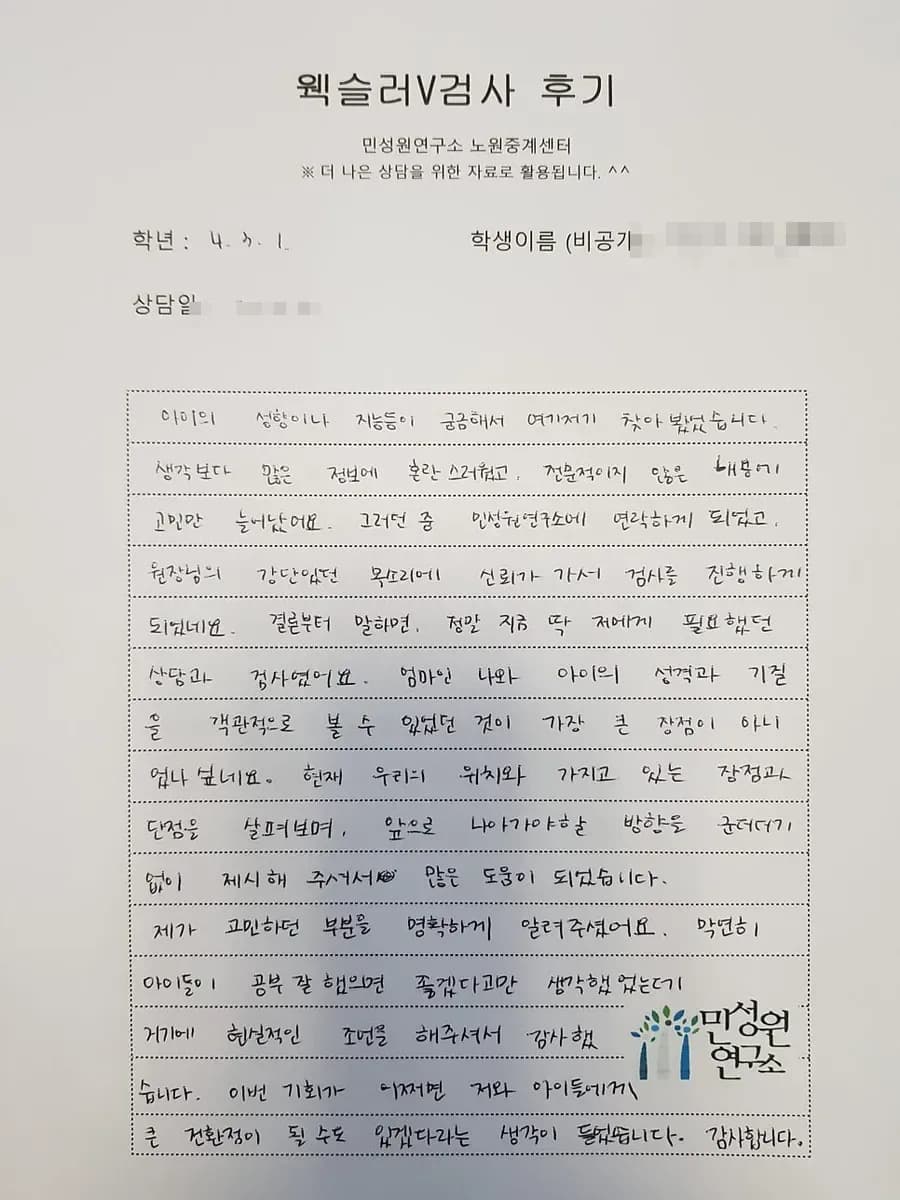 웩슬러V검사 후기
민성원연구소 노원중계센터
※ 더 나은 상담을 위한 자료로 활용됩니다. ^^
학년 : 4. 3. 1.
학생이름 (비공개
상담일
아이의 성향이나 지능등이 궁금해서 여기저기 찾아봤었습니다.
생각보다 많은 정보에 혼란스러웠고, 전문적이지 않은 때문에
고민만 늘어났어요. 그러던 중 민성원연구소에 연락하게 되었고,
원장님의 강단있던 목소리에 신뢰가 가서 검사를 진행하게
되었네요. 결론부터 말하면, 정말 지금 딱 저에게 필요했던
상담과 검사였어요. 엄마인 나와 아이의 성격과 기질
을 객관적으로 볼 수 있었던 것이 가장 큰 장점이 아니
었나 싶네요. 현재 우리의 위치와 가지고 있는 장점과
단점을 살펴보며, 앞으로 나아가야할 방향을 군더더기
없이 제시해 주셔서 많은 도움이 되었습니다.
제가 고민하던 부분을 명확하게 알려주셨어요. 막연히
아이들이 공부 잘 했으면 좋겠다고만 생각했었는데
거기에 현실적인 조언을 해주셔서 감사했
습니다. 이번 기회가 어쩌면 저와 아이들에게
큰 전환점이 될 수도 있겠다라는 생각이 들었습니다. 감사합니다.
민성원
연구소